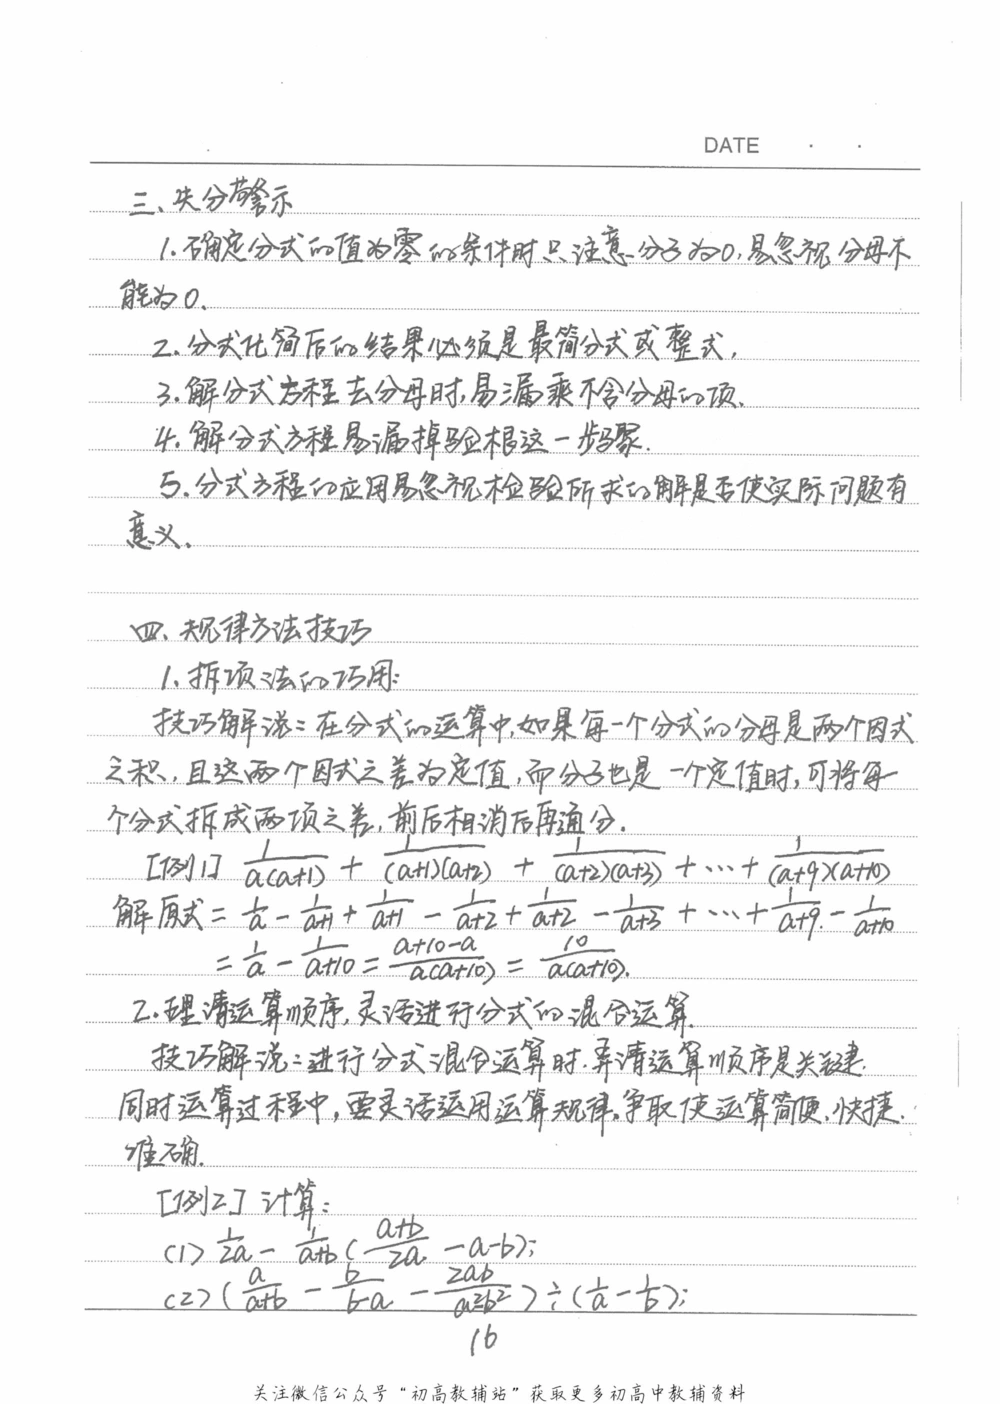 DATE · ·
三、失分警示
1.确定分式的值为零的条件时只注意分子为0,易忽视分母不
能为0.
2.分式化简后的结果必须是最简分式或整式.
3.解分式方程去分母时,易漏乘不含分母的项.
4.解分式方程易漏掉验根这一步骤.
5.分式方程的应用易忽视检验所求的解是否使实际问题有
意义.
四、规律方法技巧
1.拆项法的巧用:
技巧解说:在分式的运算中,如果每一个分式的分母是两个因式
之积,且这两个因式之差为定值,而分子也是一个定值时,可将每
个分式拆成两项之差,前后相消后再通分.
[例1] 1/a(a+1) + 1/(a+1)(a+2) + 1/(a+2)(a+3) + … + 1/(a+9)(a+10)
解原式 = 1/a - 1/a+1 + 1/a+1 - 1/a+2 + 1/a+2 - 1/a+3 + … + 1/a+9 - 1/a+10
= 1/a - 1/a+10 = a+10-a/a(a+10) = 10/a(a+10).
2.理清运算顺序,灵活进行分式的混合运算.
技巧解说:进行分式混合运算时,弄清运算顺序是关键.
同时运算过程中,要灵活运用运算规律,争取使运算简便、快捷、
准确.
[例2] 计算:
(1) 1/2a - 1/a+b (a+b/2a - a-b);
(2) (a/a+b - b/b-a - 2ab/a²-b²) ÷ (1/a - 1/b);
16
关注微信公众号“初高教辅站”获取更多初高中教辅资料